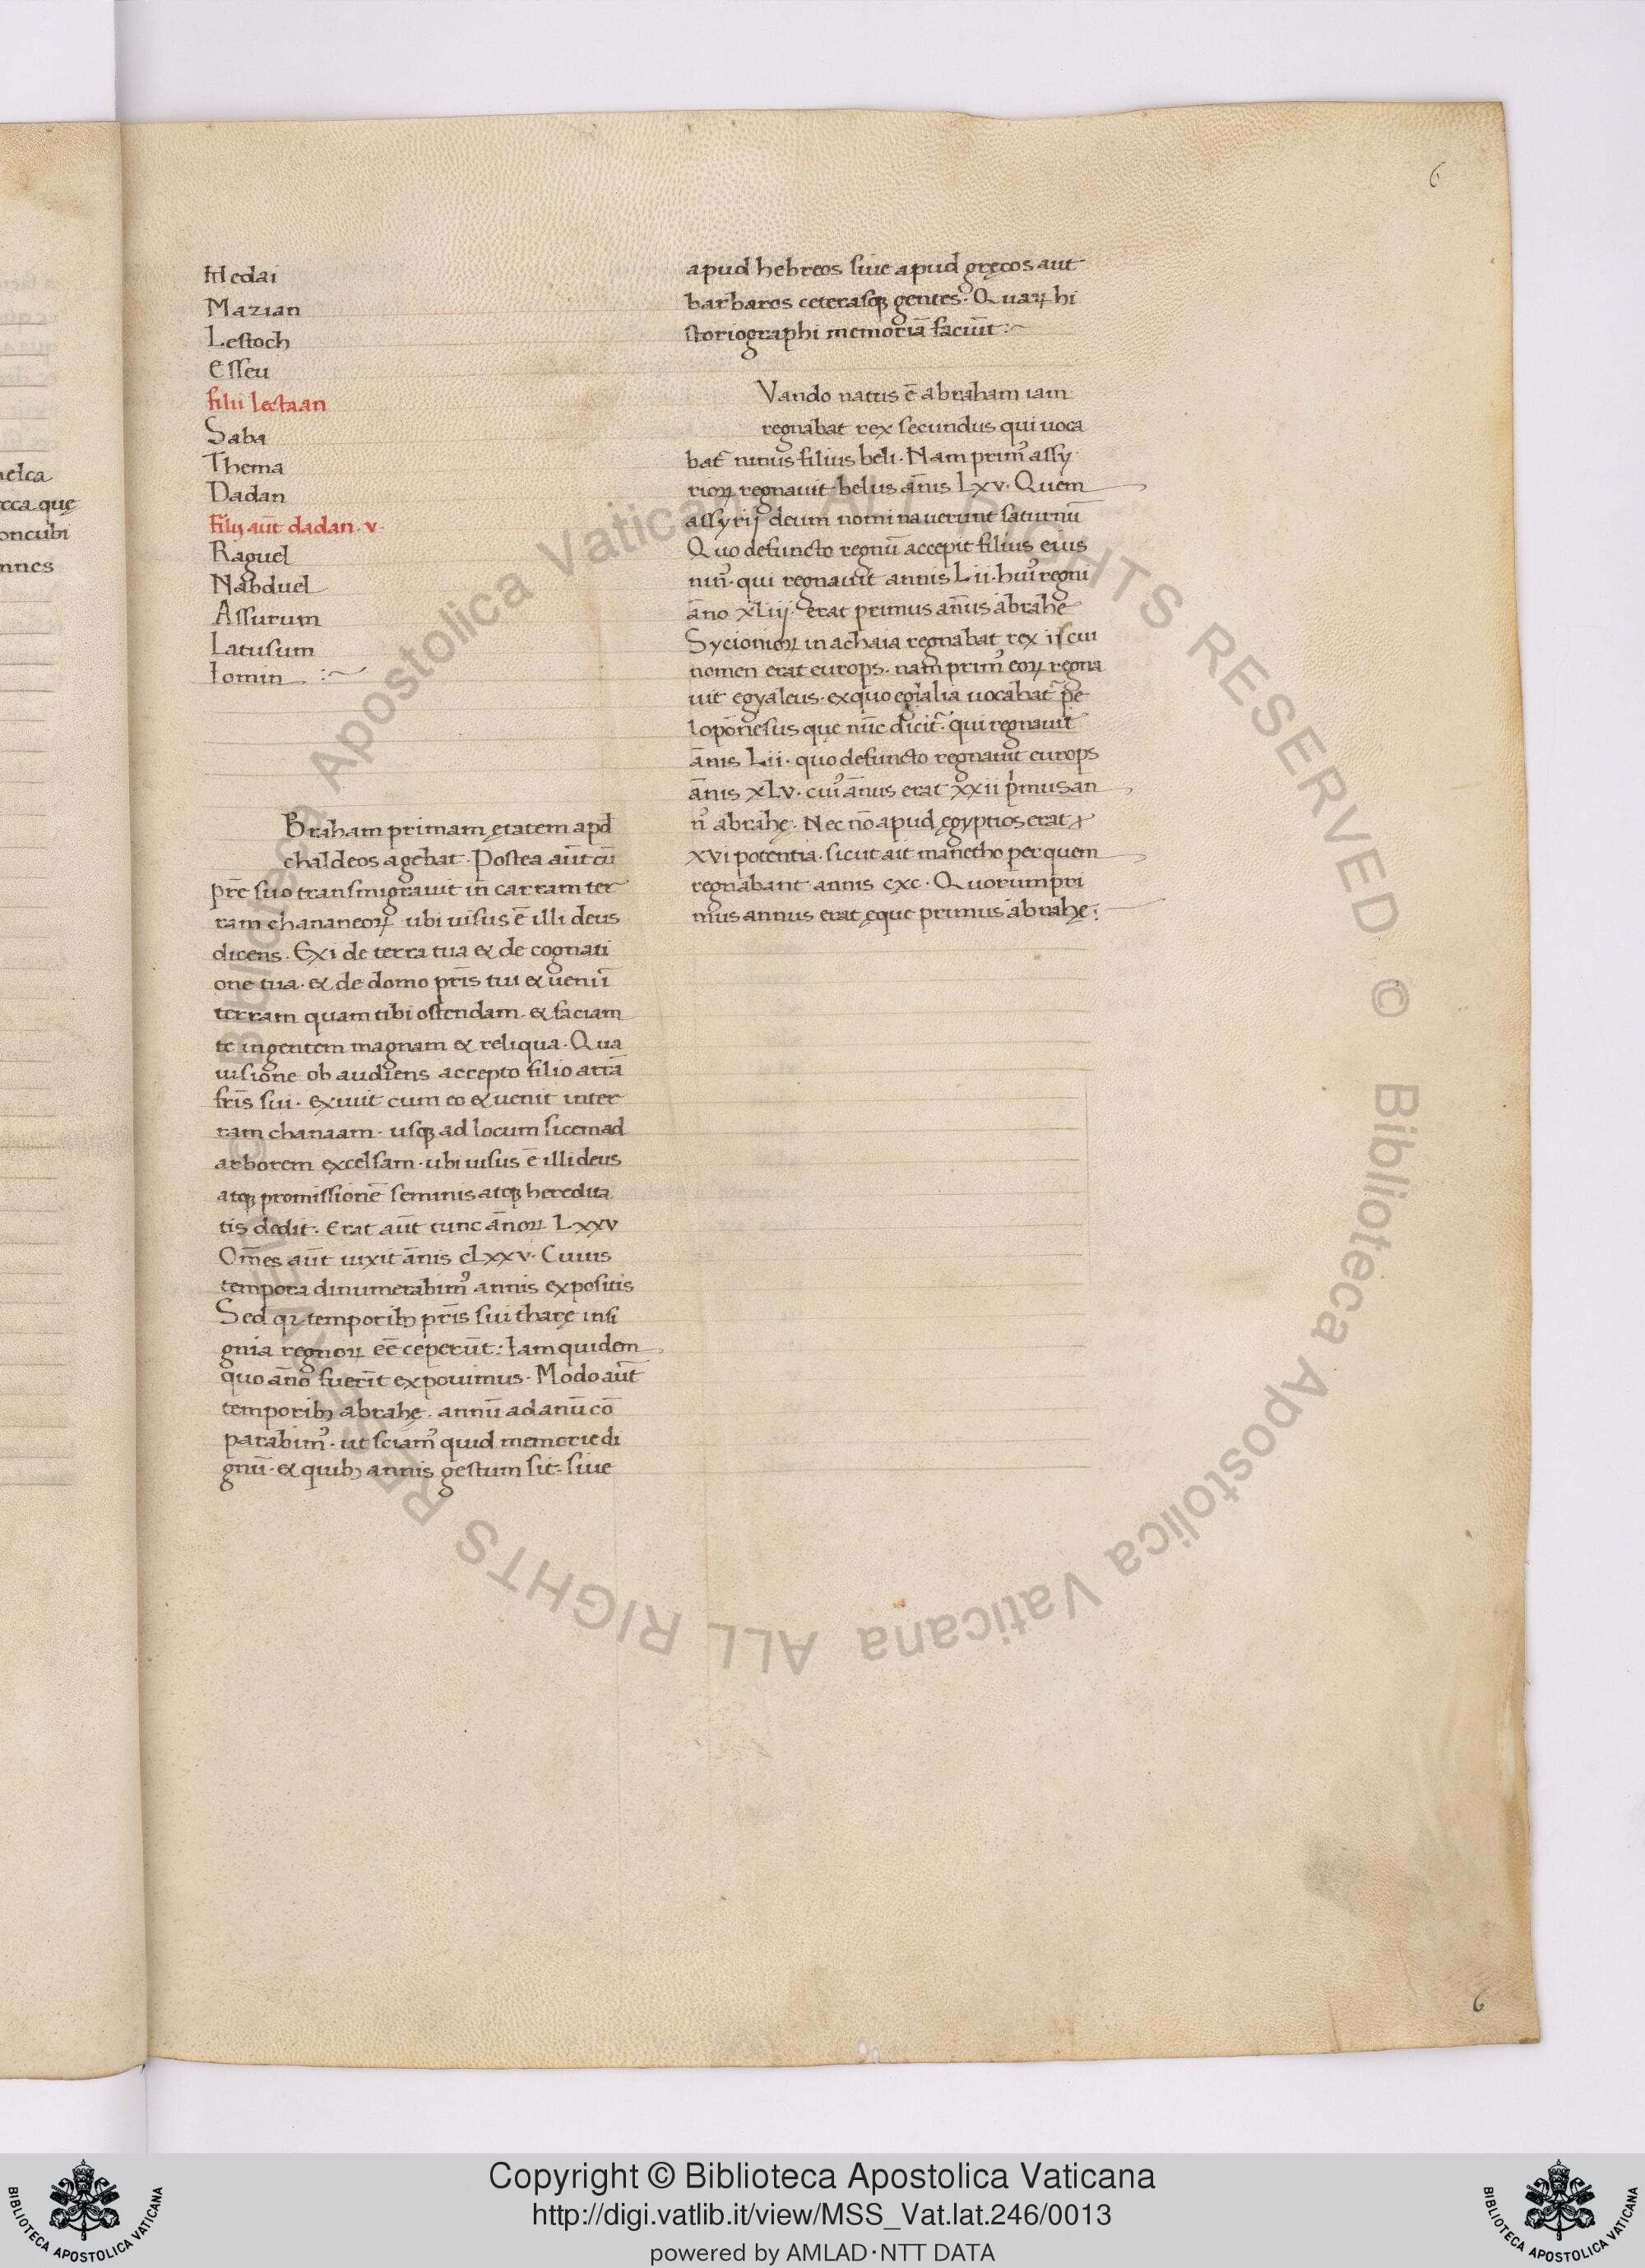 elca
cca quę
oncubi
nnes
Medai
Mazian
Lestoch
Esseu
filii lectaan
Saba
Thema
Dadan
filij aūt dadan. v.
Raguel
Nabduel
Assurum
Latusum
Iomin :~
Braham primam ętatem apđ
chaldeos agebat. Postea aūt cū
pr̄e suo transmigrauit in carram ter
ram chananeoꝝ ubi uisus ē illi deus
dicens. Exi de terra tua & de cognati
one tua. & de domo pr̄is tui & ueni ī
terram quam tibi ostendam. & faciam
te in gentem magnam & reliqua. Qua
uisione ob audiens accepto filio arrā
fr̄is sui. exiuit cum eo & uenit inter
ram chanaam. usqꝫ ad locum sicem ad
arborem excelsam. ubi uisus ē illi deus
atqꝫ promissionē seminis atqꝫ heredita
tis dedit. Erat aūt tunc ānoꝝ Lxxv
Om̄es aūt uixit ānis cLxxv. Cuius
tempora dinumerabimꝰ annis expositis
Sed qꝛ temporibꝫ pr̄is sui tharę insi
gnia regnoꝝ eē ceperūt: Iam quidem
quo āno fuerīt exposuimus. Modo aūt
temporibꝫ abrahę. annū ad anū cō
parabimꝰ. ut sciamꝰ quid memorie di
gnū. & quibꝫ annis gestum sit. siue
6
apud hebreos siue apud gręcos aut
barbaros ceterasqꝫ gentes. Quaꝝ hi
storiographi memoriā faciūt :~
Vando natus ē abraham iam
regnabat rex secundus qui uoca
bat᷑ ninus filius beli. Nam primꝰ assy
rioꝝ regnauit belus ānis Lxv. Quem
assyrij deum nominauerunt saturnū
Quo defuncto regnū accepit filius eius
ninꝰ. qui regnauit annis Lii. huiꝰ regni
āno xLiij. erat primus an̄us abrahe
Sycionioꝝ in achaia regnabat rex ii cui
nomen erat europs. nam primꝰ eoꝝ regna
uit egyaleus. ex quo egialia uocabat᷑ pe
loponesus que nūc dicit᷑. qui regnauit
ānis Lii. quo defuncto regnauit europs
ānis xLv. cuiꝰ ānus erat xxii pⁱmus an
nꝰ abrahę. Nec nō apud ęgyptios erat
xvi potentia. sicut ait manetho per quem
regnabant annis cxc. Quorum pri
mus annus erat ęque primus abrahę :
6
Biblioteca Apostolica Vaticana ALL RIGHTS RESERVED © Biblioteca Apostolica Vaticana ALL RIGHTS RESERVED ©
Copyright © Biblioteca Apostolica Vaticana
http://digi.vatlib.it/view/MSS_Vat.lat.246/0013
powered by AMLAD·NTT DATA
BIBLIOTECA APOSTOLICA VATICANA
BIBLIOTECA APOSTOLICA VATICANA